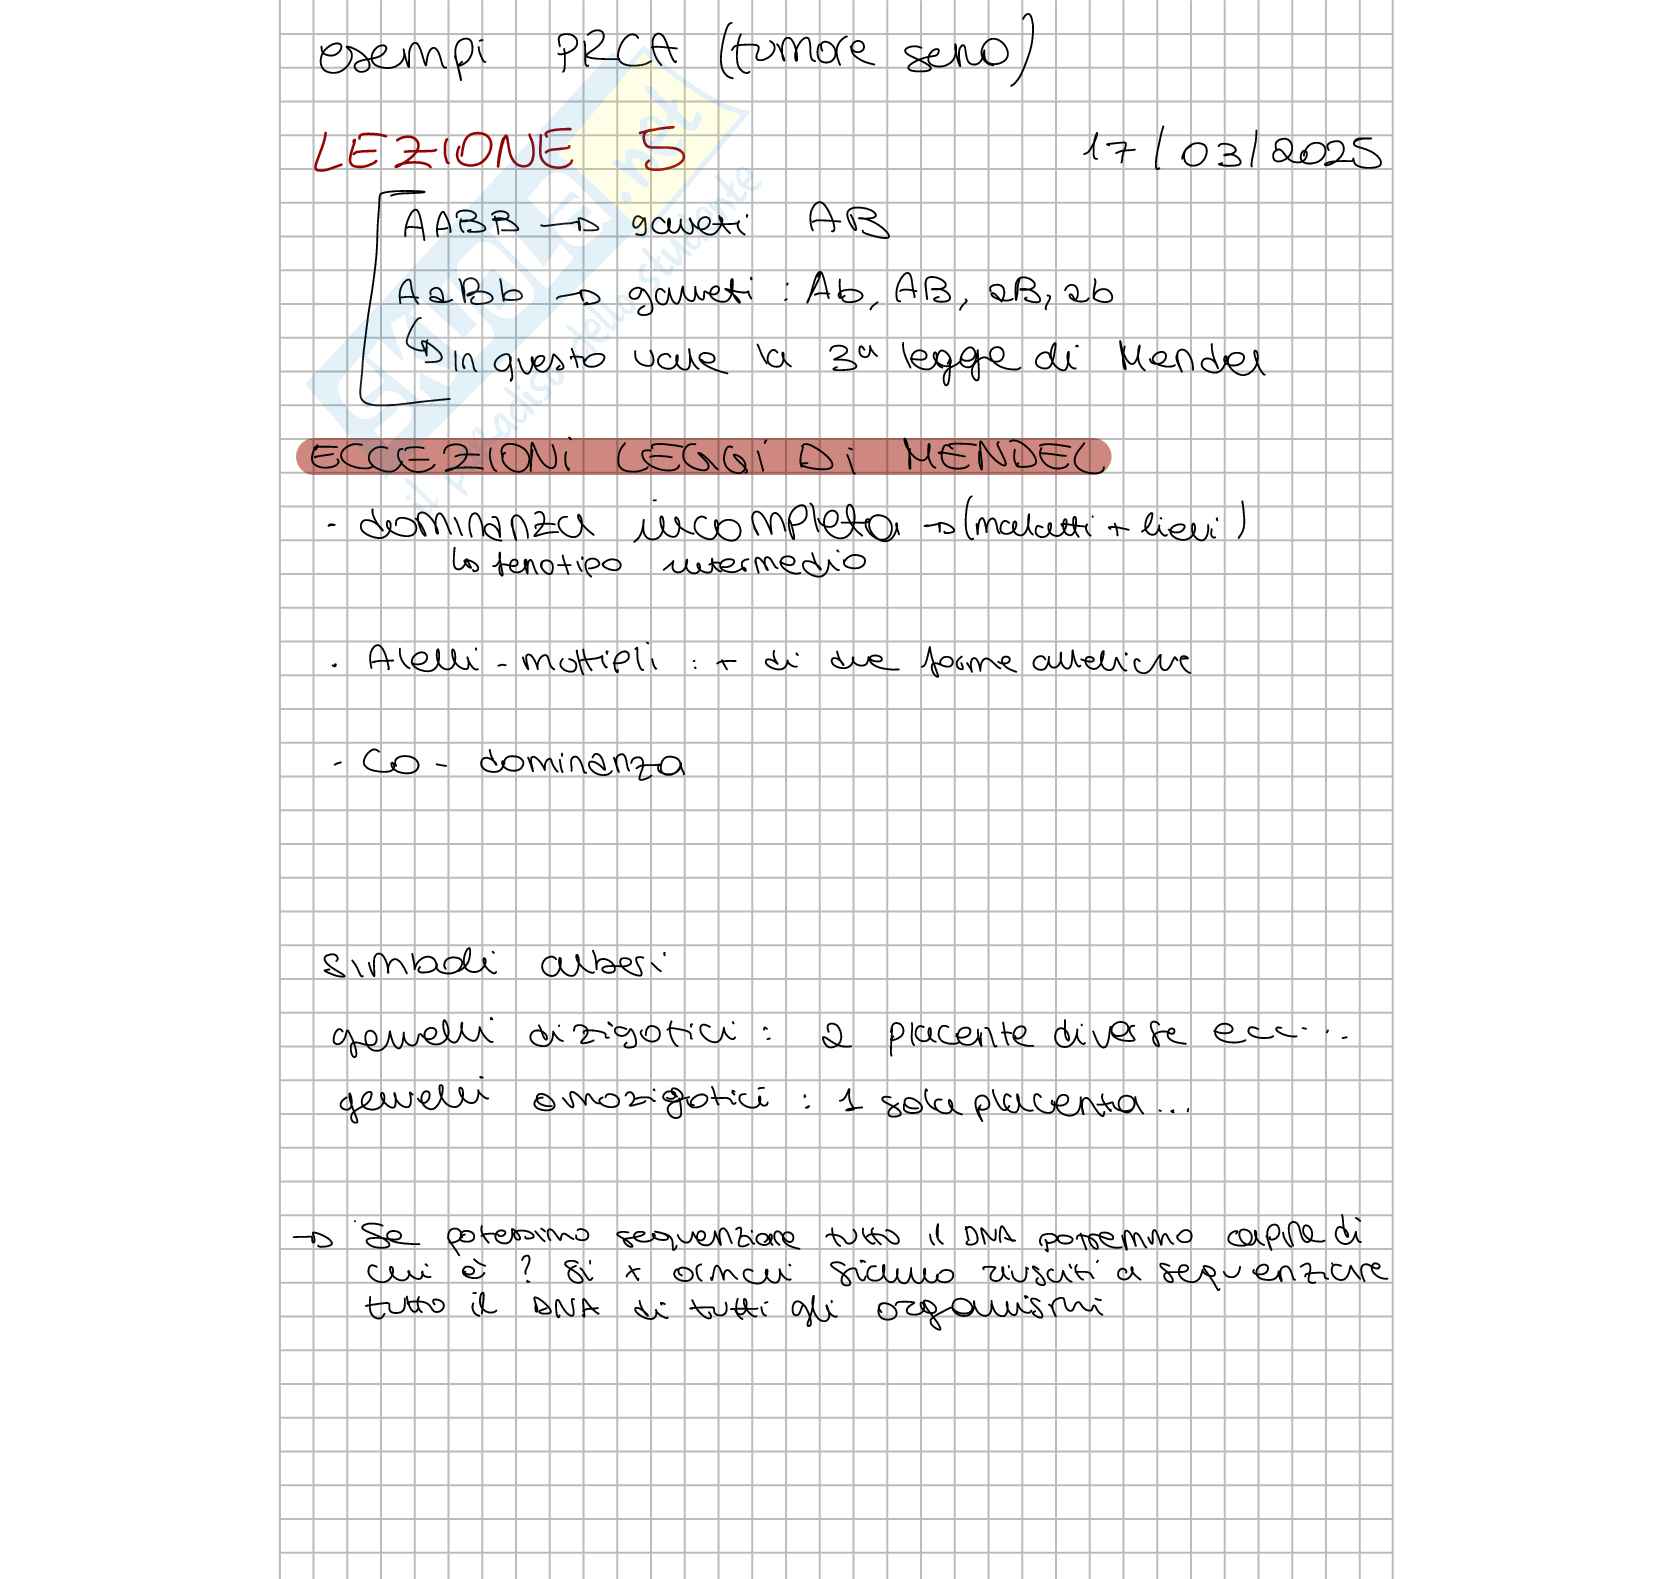 esempi PRCA (tumore seno)
LEZIONE 5 17/03/2025
AABB → gameti AB
AaBb → gameti : Ab, AB, aB, ab
↳ in questo vale la 3ª legge di Mendel
ECCEZIONI LEGGI DI MENDEL
- dominanza incompleta → (malatti + lievi)
↳ fenotipo intermedio
. Alelli - moltipli : + di due forme alleliche
- Co - dominanza
simboli alberi
gemelli dizigotici : 2 placente diverse ecc...
gemelli omozigotici : 1 sola placenta...
→ Se potessimo sequenziare tutto il DNA potremmo capire di
chi è ? Si x ormai siamo riusciti a sequenziare
tutto il DNA di tutti gli organismi
SKUOLA.net
il paradiso dello studente